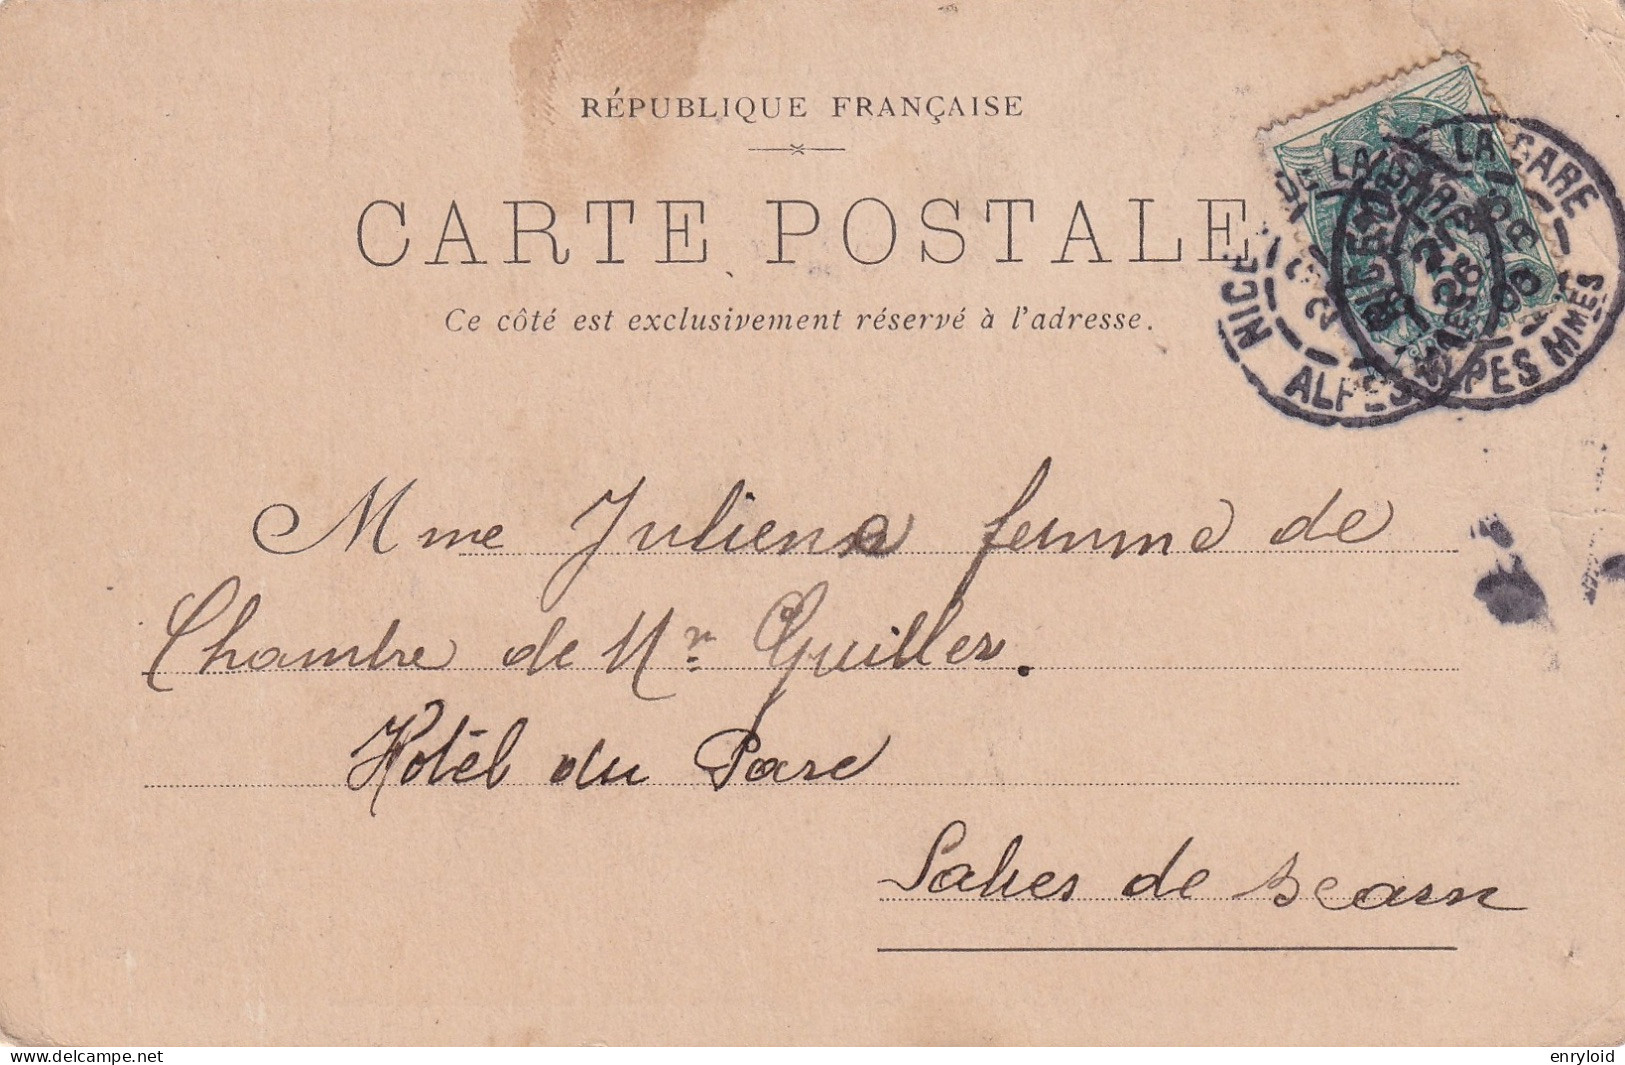 RÉPUBLIQUE FRANÇAISE
CARTE POSTALE
Ce côté est exclusivement réservé à l'adresse.
NICE LA GARE
ALPES MMES
LA GARE
ALPES MMES
Mme Juliena femme de
Chambre de Mr Quiller.
Hotêl du Parc
Salies de Bearn
delcampe.net
enryloid